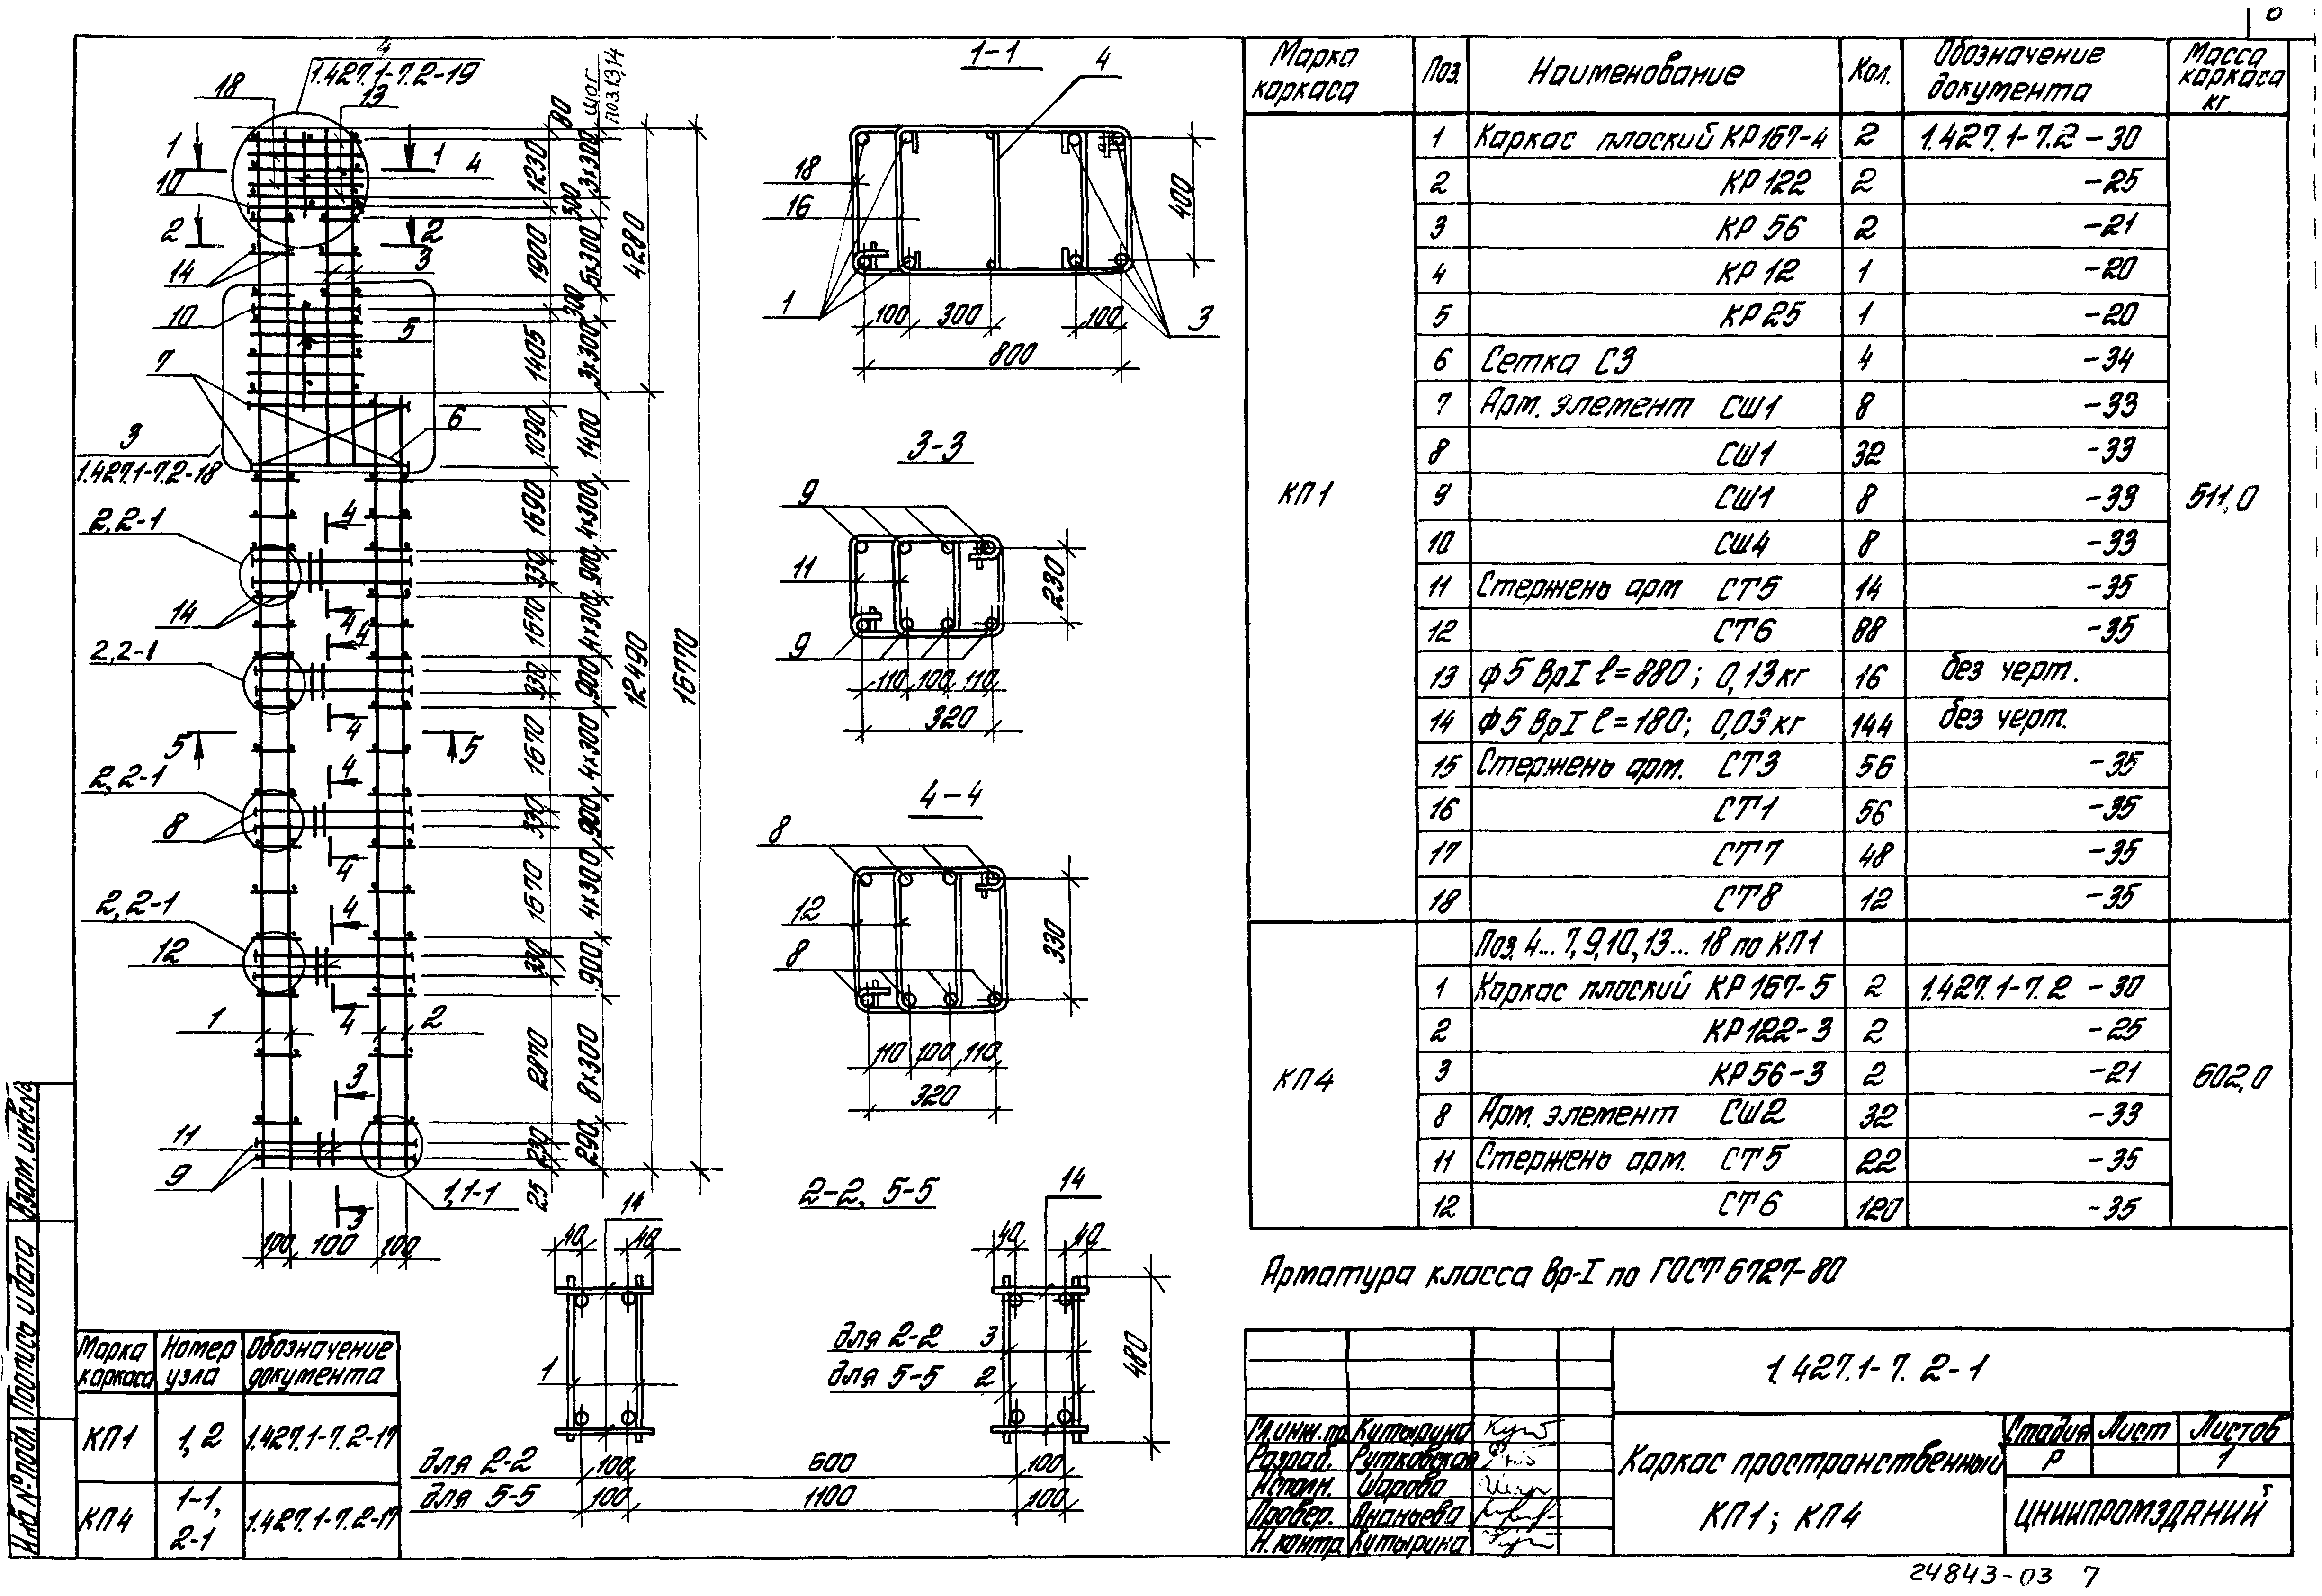 4
1.427.1-7.2-19
18
13
80
шаг
поз.13,14
1
1
4
10
1230
3×300
300
2
2
3
14
1900
5×300
4280
10
5
300
1405
3×300
7
6
3
1.427.1-7.2-18
1090
1400
2,2-1
4
1590
4×300
330
900
14
4
4
1670
4×300
2,2-1
330
900
12490
16770
4
5
5
1670
4×300
4
2,2-1
330
900
8
4
1670
4×300
2,2-1
4
12
330
900
4
1
2
2870
8×300
3
11
9
230
290
1,1-1
25
3
100
100
100
1-1
4
18
16
400
1
3
100
300
100
800
3-3
9
11
230
9
110
100
110
320
4-4
8
12
330
8
110
100
110
320
2-2, 5-5
14
14
40
40
40
40
1
для 2-2 3
для 5-5 2
480
для 2-2 100 600 100
для 5-5 100 1100 100
Марка каркаса Поз. Наименование Кол. Обозначение документа Масса каркаса кг
КП1 511,0
1 Каркас плоский КР167-4 2 1.427.1-7.2-30
2 КР122 2 -25
3 КР56 2 -21
4 КР12 1 -20
5 КР25 1 -20
6 Сетка С3 4 -34
7 Арм. элемент СШ1 8 -33
8 СШ1 32 -33
9 СШ1 8 -33
10 СШ4 8 -33
11 Стержень арм СТ5 14 -35
12 СТ6 88 -35
13 ф5 ВрI ℓ=880; 0,13кг 16 без черт.
14 ф5 ВрI ℓ=180; 0,03кг 144 без черт.
15 Стержень арм. СТ3 56 -35
16 СТ1 56 -35
17 СТ7 48 -35
18 СТ8 12 -35
КП4 602,0
Поз. 4...7,9,10,13...18 по КП1
1 Каркас плоский КР167-5 2 1.427.1-7.2-30
2 КР122-3 2 -25
3 КР56-3 2 -21
8 Арм. элемент СШ2 32 -33
11 Стержень арм. СТ5 22 -35
12 СТ6 120 -35
Арматура класса Вр-I по ГОСТ 6727-80
Марка каркаса Номер узла Обозначение документа
КП1 1,2 1.427.1-7.2-17
КП4 1-1, 2-1 1.427.1-7.2-17
Взам. инв.№
Подпись и дата
Инв № подл.
1.427.1-7.2-1
Гл.инж.пр. Кутырина
Разраб. Рутковская
Исполн. Шарова
Провер. Ананьева
Н.контр. Кутырина
Каркас пространственный
КП1; КП4
Стадия Лист Листов
Р 1
ЦНИИПРОМЗДАНИЙ
24843-03 7